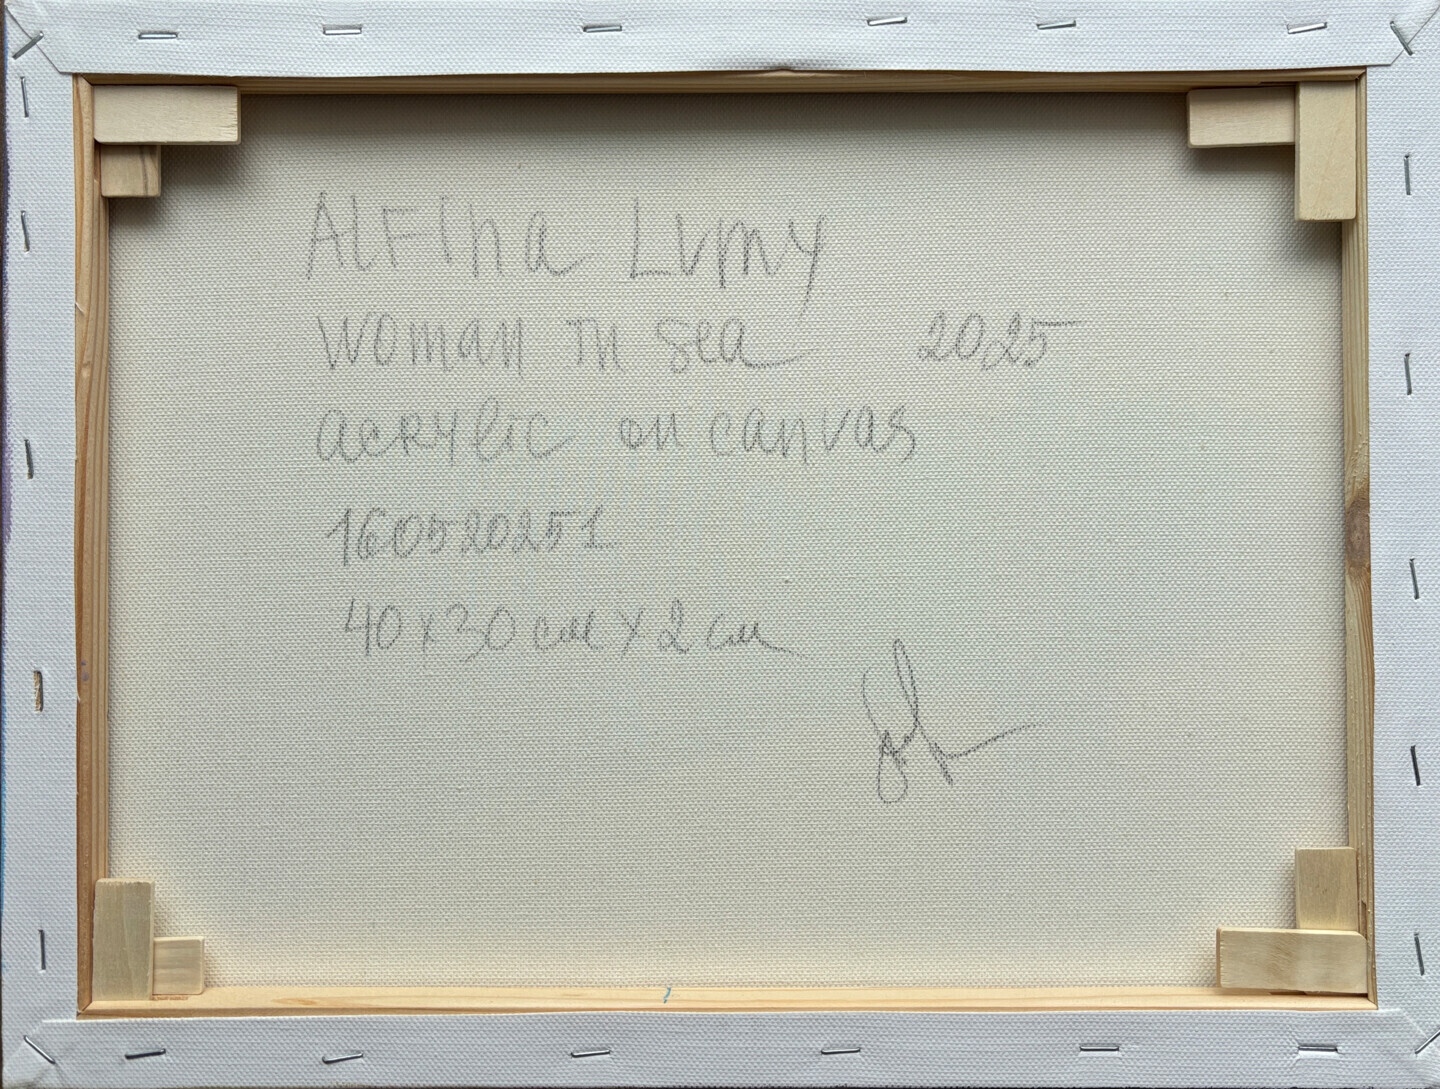 Alfina Lumy
Woman in sea 2025
acrylic on canvas
160520251
40x30 см x 2 см